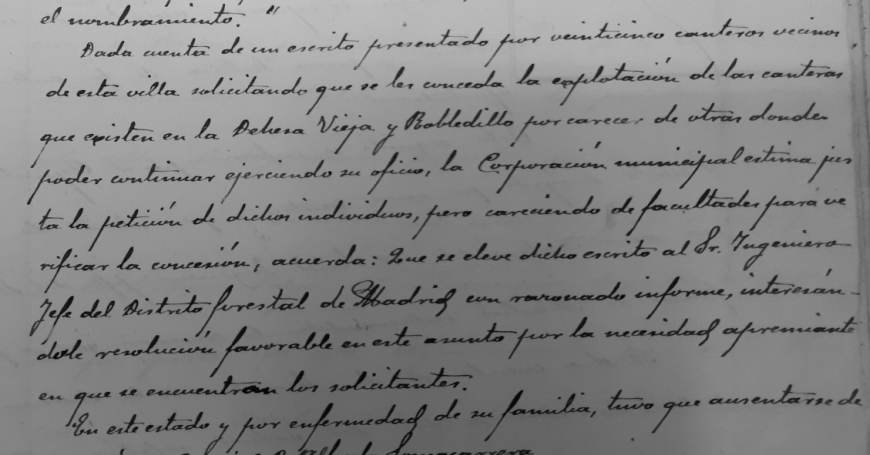 el nombramiento."
Dada cuenta de un escrito presentado por veinticinco canteros vecinos
de esta villa solicitando que se les conceda la explotación de las canteras
que existen en la Dehesa Vieja y Robledillo por carecer de otras donde
poder continuar ejerciendo su oficio, la Corporación municipal estima jus
ta la petición de dichos individuos, pero careciendo de facultades para ve
rificar la concesión, acuerda: Que se eleve dicho escrito al Sr. Ingeniero
Jefe del Distrito forestal de Madrid con razonado informe, interesán-
dole resolución favorable en este asunto por la necesidad apremiante
en que se encuentran los solicitantes.
En este estado y por enfermedad de su familia, tuvo que ausentarse de